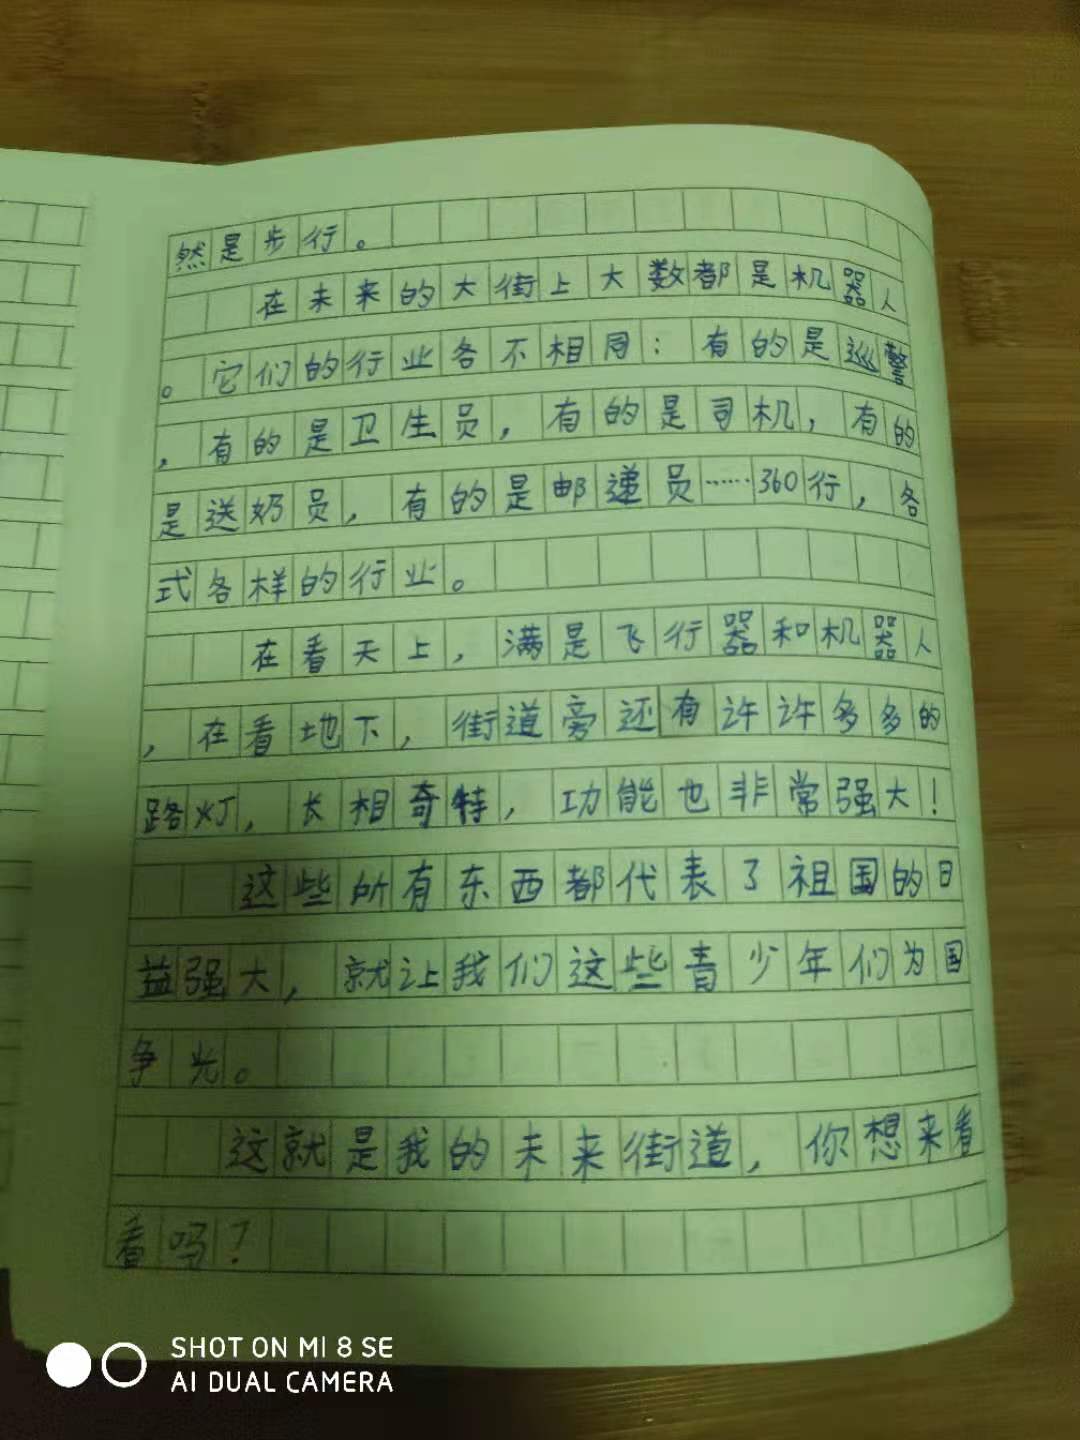 然是步行。
在未来的大街上大数都是机器人
。它们的行业各不相同：有的是巡警
，有的是卫生员，有的是司机，有的
是送奶员，有的是邮递员……360行，各
式各样的行业。
在看天上，满是飞行器和机器人
，在看地下，街道旁还有许许多多的
路灯，长相奇特，功能也非常强大！
这些所有东西都代表了祖国的日
益强大，就让我们这些青少年们为国
争光。
这就是我的未来街道，你想来看
看吗？
SHOT ON MI 8 SE
AI DUAL CAMERA